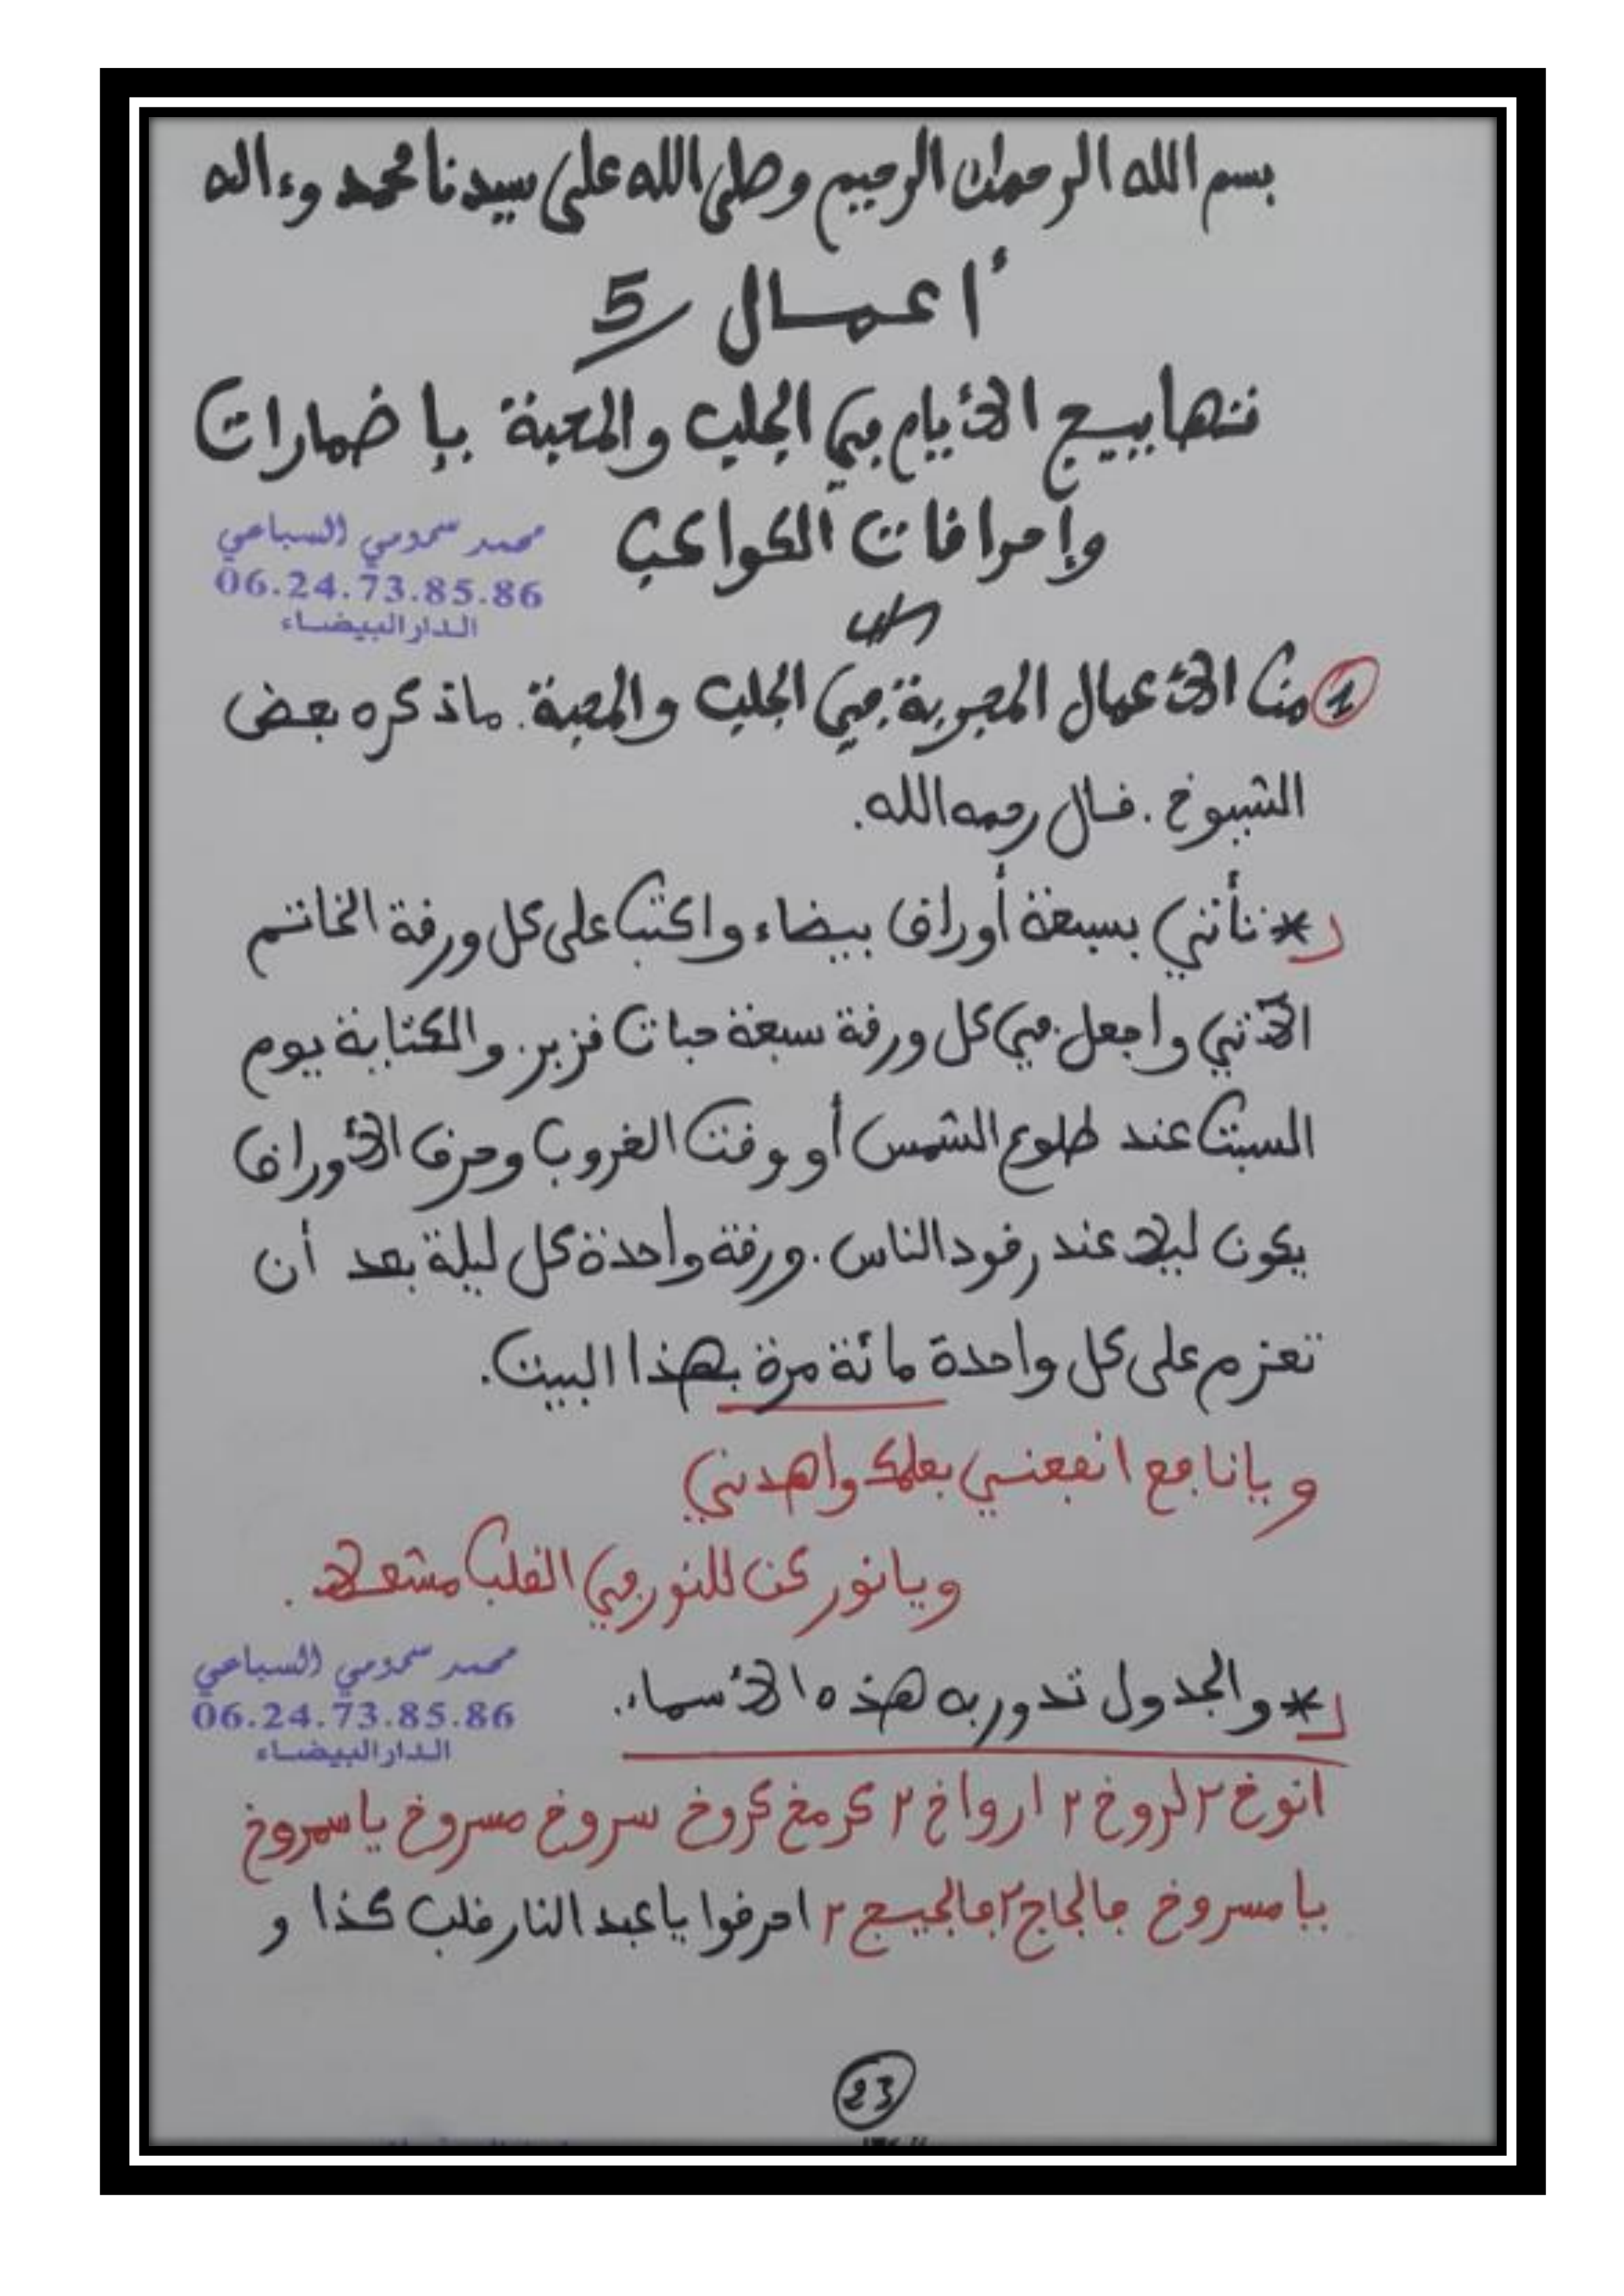 بسم الله الرحمان الرحيم وصلى الله على سيدنا محمد وءاله
أعمال 5
تهاييج الأيام في الجلب والمحبة بإضمارات
وإحراقات الكواعب
محمد سمومي السباعي
06.24.73.85.86
الدار البيضاء
1 من الأعمال المجربة في الجلب والمحبة. ما ذكره بعض
الشيوخ. قال رحمه الله.
* تأتي بسبعة أوراق بيضاء واكتب على كل ورقة الخاتم
الآتي واجعل في كل ورقة سبعة حبات قزبر. والكتابة يوم
السبت عند طلوع الشمس أو وقت الغروب وحرق الأوراق
يكون ليلا عند رقود الناس. ورقة واحدة كل ليلة بعد أن
تعزم على كل واحدة مائة مرة بهذا البيت.
ويا نافع انفعني بعلمك واهدني
ويا نور كن للنور في القلب مشعلا.
* والجدول تدور به هذه الأسماء.
محمد سمومي السباعي
06.24.73.85.86
الدار البيضاء
انوخ ٢ لروخ ٢ ارواخ ٢ كرمغ كروخ سروخ مسروخ يا سمروخ
يا مسروخ جالجاج ٢ جالجيج ٢ احرقوا يا عبد النار قلب كذا و
23